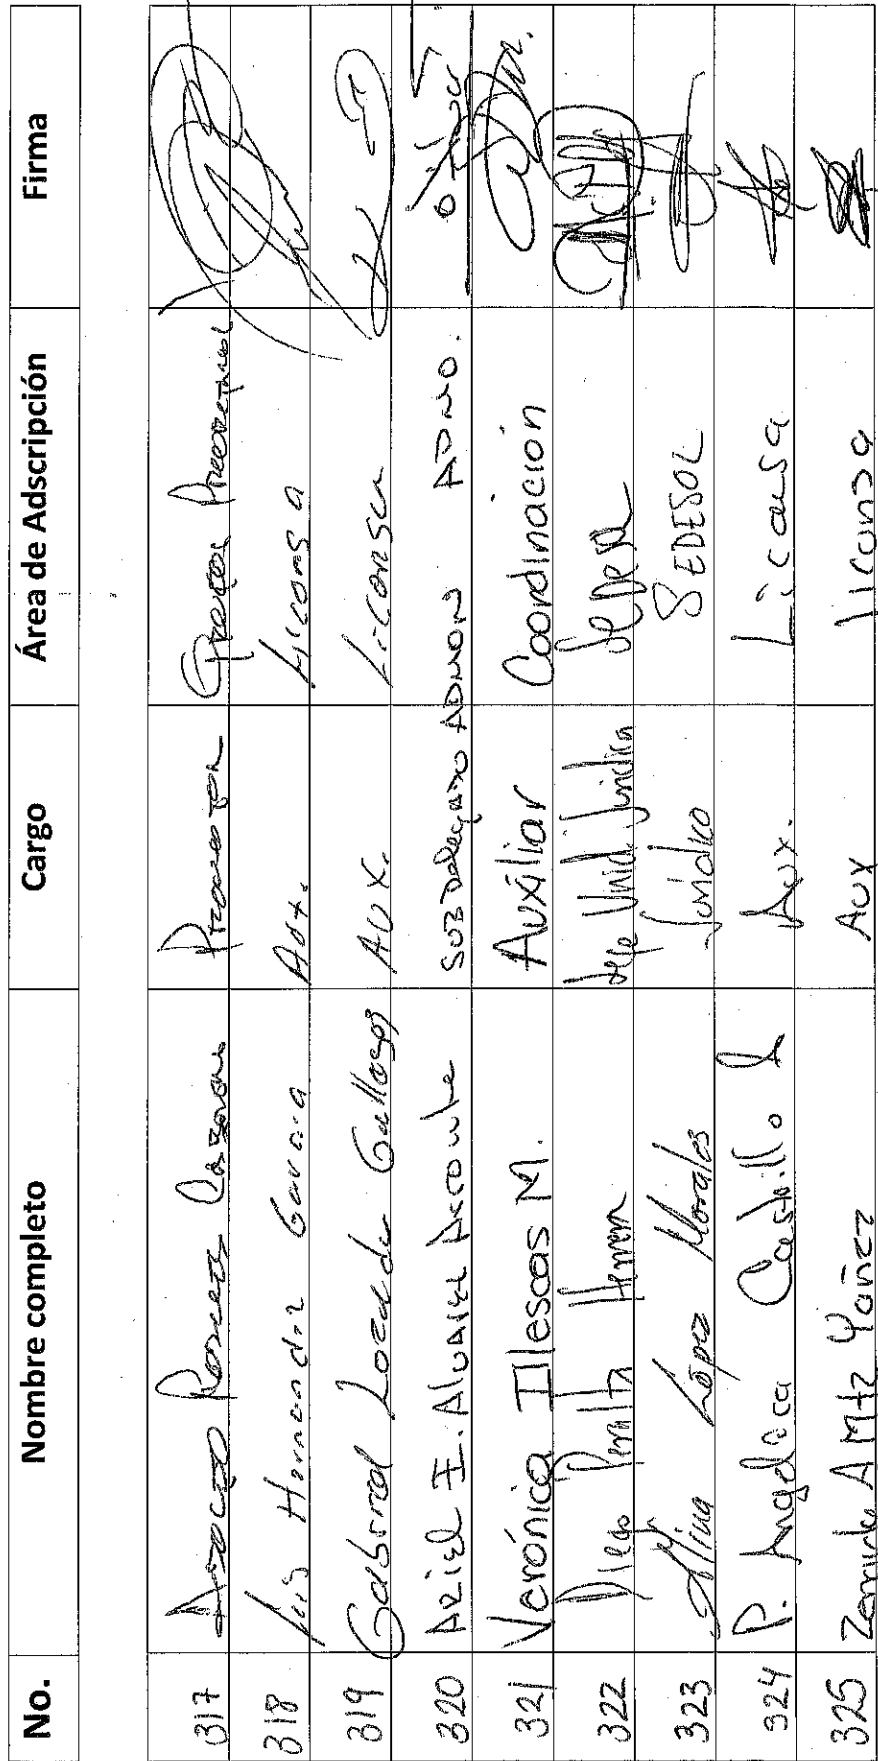 No. Nombre completo Cargo Área de Adscripción Firma
317 Promotor
318 Luis Hernandez Aux. Liconsa
319 Gabriel Lozada Gallegos Aux. Liconsa
320 Ariel I. Alvarez SUBDelegado ADMON ADMO.
321 Verónica Illescas M. Auxiliar Coordinación
322 Diego Peralta Herrera Jefe Unid. Jurídica Sedesol
323 Alina López Morales Jurídico SEDESOL
324 P. Angelica Castillo L Aux. Liconsa
325 A Mtz Yañez Aux liconsa